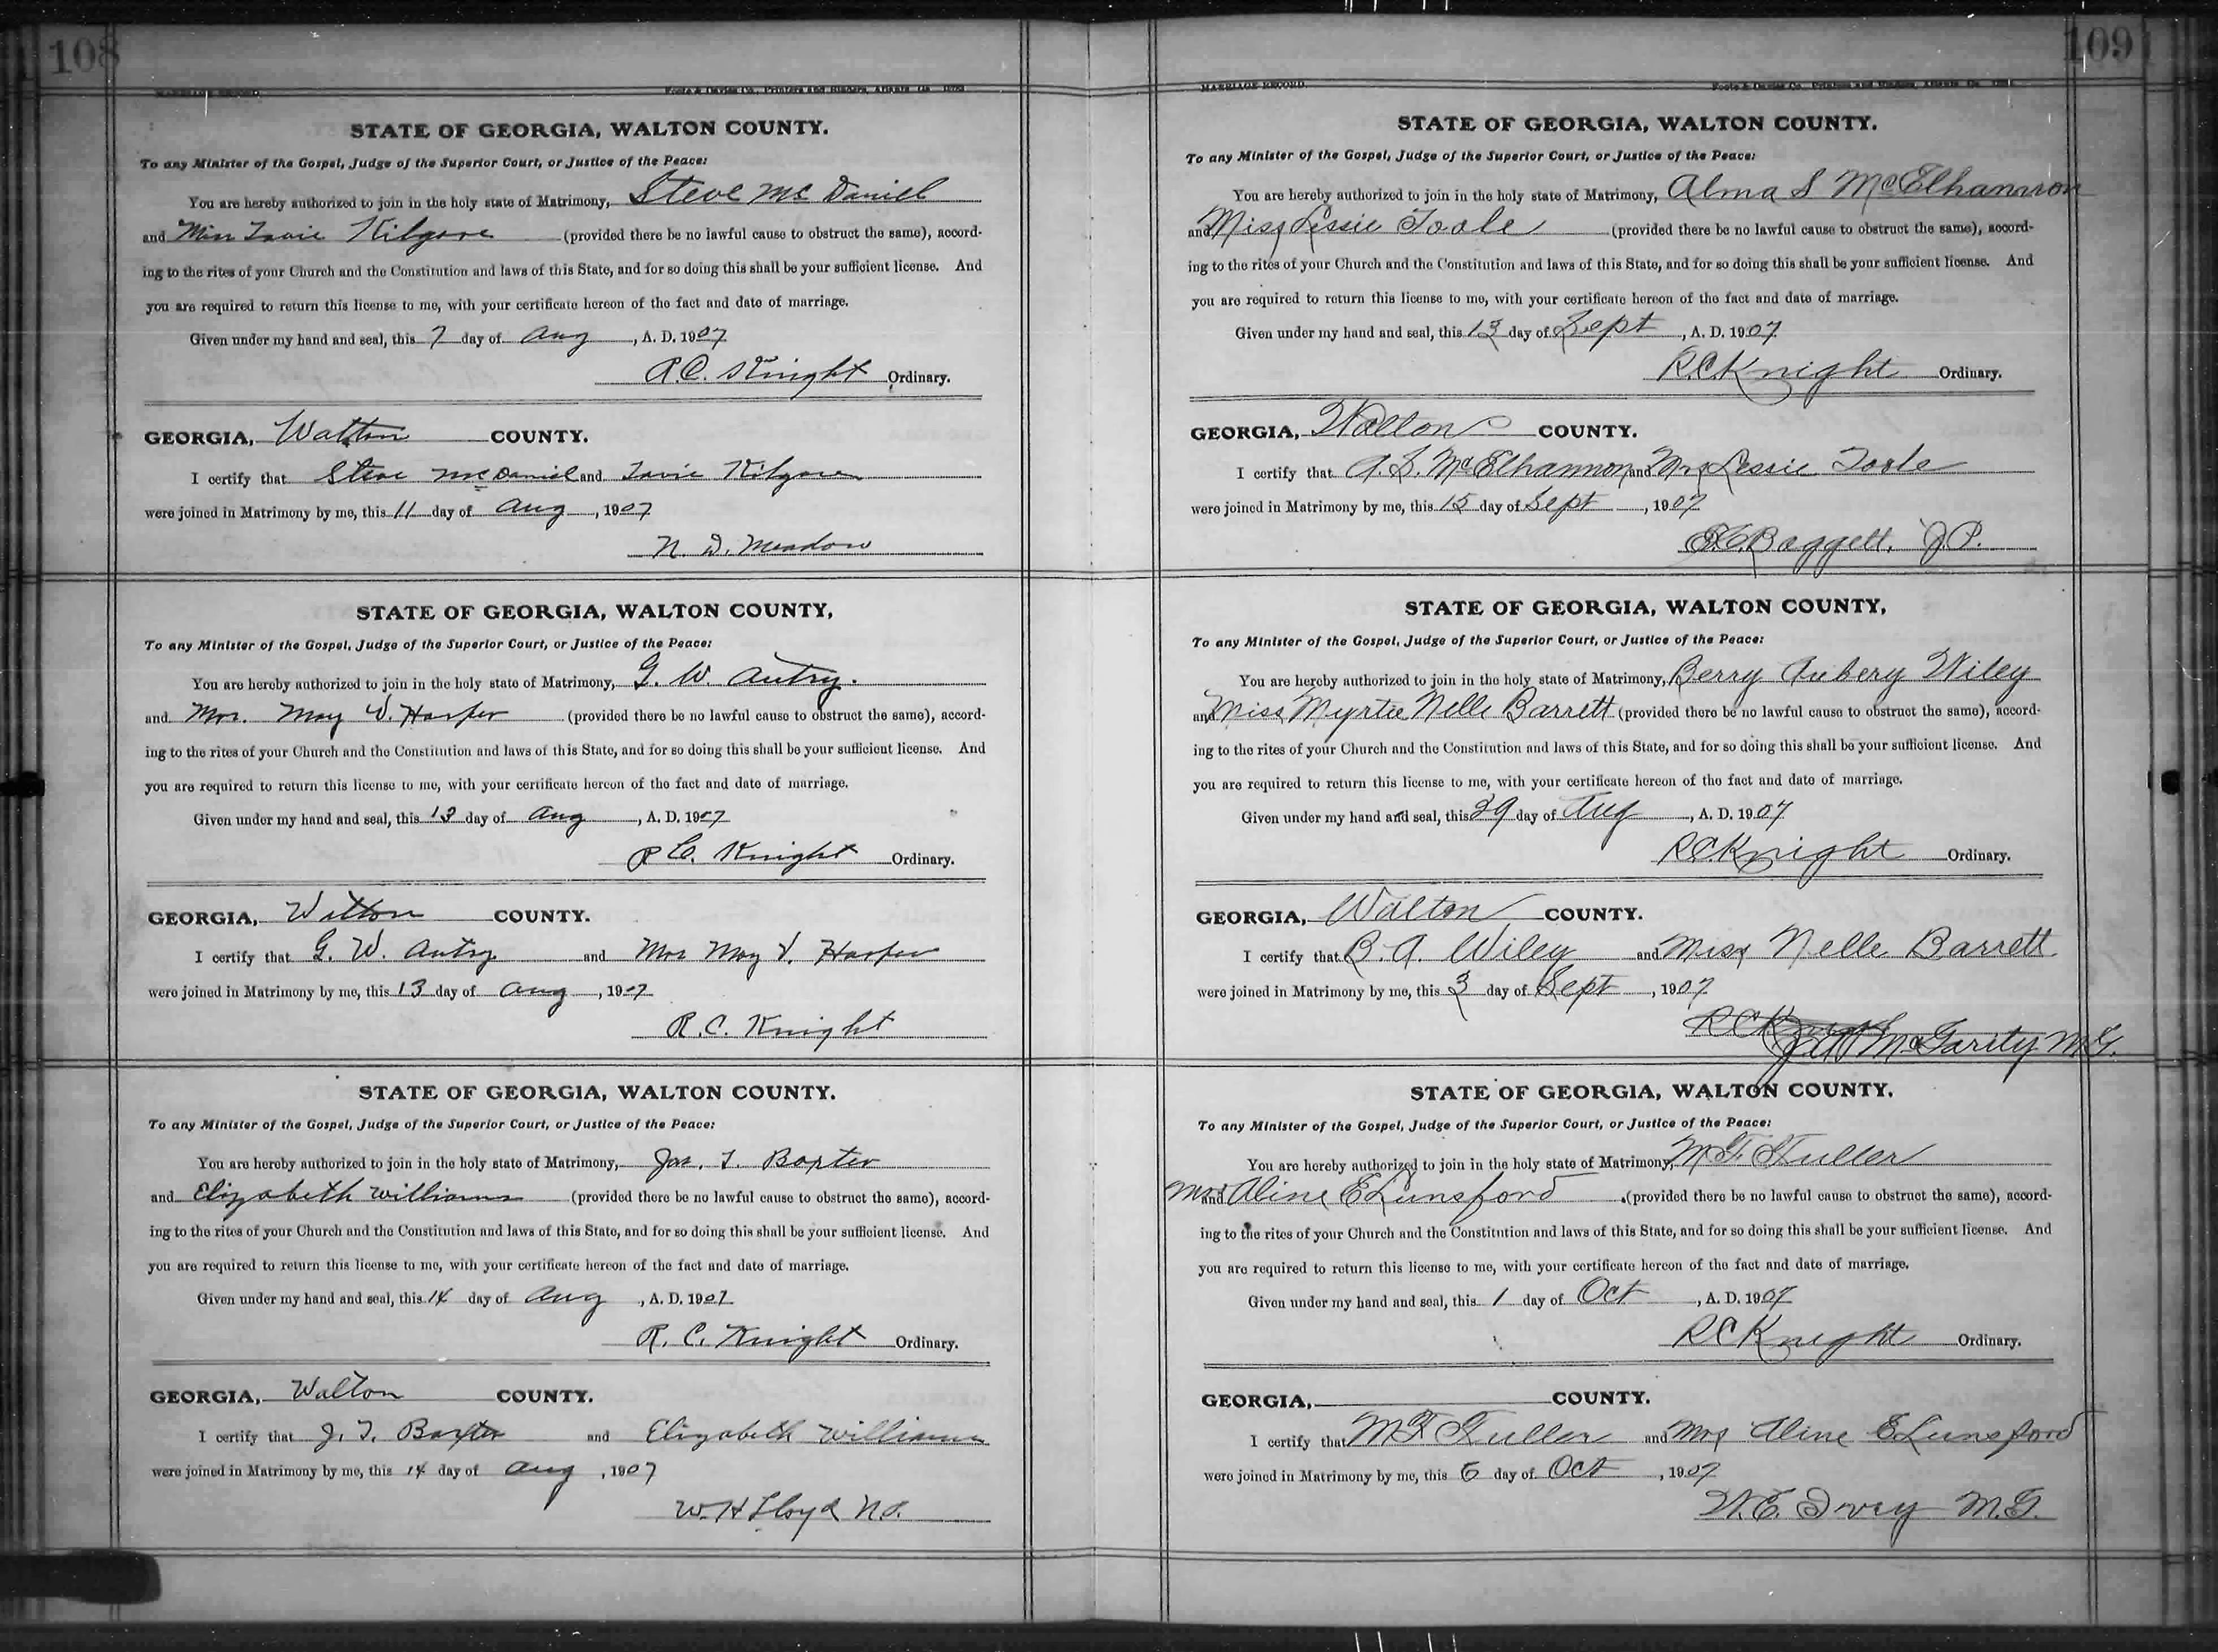 108
MARRIAGE RECORD. Foote & Davies Co., Printers and Binders, Atlanta, Ga.
STATE OF GEORGIA, WALTON COUNTY.
To any Minister of the Gospel, Judge of the Superior Court, or Justice of the Peace:
You are hereby authorized to join in the holy state of Matrimony, Steve McDaniel
and Miss Kilgore (provided there be no lawful cause to obstruct the same), accord-
ing to the rites of your Church and the Constitution and laws of this State, and for so doing this shall be your sufficient license. And
you are required to return this license to me, with your certificate hereon of the fact and date of marriage.
Given under my hand and seal, this 7 day of Aug, A. D. 1907
R.C. Knight Ordinary.
GEORGIA, Walton COUNTY.
I certify that Steve McDaniel and Kilgore
were joined in Matrimony by me, this 11 day of Aug, 1907
N. D. Meadow
STATE OF GEORGIA, WALTON COUNTY,
To any Minister of the Gospel, Judge of the Superior Court, or Justice of the Peace:
You are hereby authorized to join in the holy state of Matrimony, G. W. Autry.
and Mrs. May V. Harper (provided there be no lawful cause to obstruct the same), accord-
ing to the rites of your Church and the Constitution and laws of this State, and for so doing this shall be your sufficient license. And
you are required to return this license to me, with your certificate hereon of the fact and date of marriage.
Given under my hand and seal, this 13 day of Aug, A. D. 1907
R C. Knight Ordinary.
GEORGIA, Walton COUNTY.
I certify that G. W. Autry and Mrs May V. Harper
were joined in Matrimony by me, this 13 day of Aug, 1907
R.C. Knight
STATE OF GEORGIA, WALTON COUNTY.
To any Minister of the Gospel, Judge of the Superior Court, or Justice of the Peace:
You are hereby authorized to join in the holy state of Matrimony, Jas. T. Baxter
and Elizabeth Williams (provided there be no lawful cause to obstruct the same), accord-
ing to the rites of your Church and the Constitution and laws of this State, and for so doing this shall be your sufficient license. And
you are required to return this license to me, with your certificate hereon of the fact and date of marriage.
Given under my hand and seal, this 14 day of Aug, A. D. 1907
R. C. Knight Ordinary.
GEORGIA, Walton COUNTY.
I certify that J. T. Baxter and Elizabeth Williams
were joined in Matrimony by me, this 14 day of Aug, 1907
W. H Lloyd
109
MARRIAGE RECORD. Foote & Davies Co., Printers and Binders, Atlanta, Ga.
STATE OF GEORGIA, WALTON COUNTY.
To any Minister of the Gospel, Judge of the Superior Court, or Justice of the Peace:
You are hereby authorized to join in the holy state of Matrimony, Alma S McElhannon
and Miss Lessie Toole (provided there be no lawful cause to obstruct the same), accord-
ing to the rites of your Church and the Constitution and laws of this State, and for so doing this shall be your sufficient license. And
you are required to return this license to me, with your certificate hereon of the fact and date of marriage.
Given under my hand and seal, this 13 day of Sept, A. D. 1907
R.C. Knight Ordinary.
GEORGIA, Walton COUNTY.
I certify that A. S. McElhannon and Lessie Toole
were joined in Matrimony by me, this 15 day of Sept, 1907
Baggett. J.P.
STATE OF GEORGIA, WALTON COUNTY,
To any Minister of the Gospel, Judge of the Superior Court, or Justice of the Peace:
You are hereby authorized to join in the holy state of Matrimony, Berry Aubery Wiley
and Miss Myrtie Nelle Barrett (provided there be no lawful cause to obstruct the same), accord-
ing to the rites of your Church and the Constitution and laws of this State, and for so doing this shall be your sufficient license. And
you are required to return this license to me, with your certificate hereon of the fact and date of marriage.
Given under my hand and seal, this 29 day of Aug, A. D. 1907
R.C. Knight Ordinary.
GEORGIA, Walton COUNTY.
I certify that B. A. Wiley and Miss Nelle Barrett
were joined in Matrimony by me, this 3 day of Sept, 1907
R C Knight
McGarity M.G.
STATE OF GEORGIA, WALTON COUNTY.
To any Minister of the Gospel, Judge of the Superior Court, or Justice of the Peace:
You are hereby authorized to join in the holy state of Matrimony, M F Fuller
and Mrs Aline E Lunsford (provided there be no lawful cause to obstruct the same), accord-
ing to the rites of your Church and the Constitution and laws of this State, and for so doing this shall be your sufficient license. And
you are required to return this license to me, with your certificate hereon of the fact and date of marriage.
Given under my hand and seal, this 1 day of Oct, A. D. 1907
R C Knight Ordinary.
GEORGIA, COUNTY.
I certify that M F Fuller and Mrs Aline E Lunsford
were joined in Matrimony by me, this 6 day of Oct, 1907
W. E. Ivey M.G.